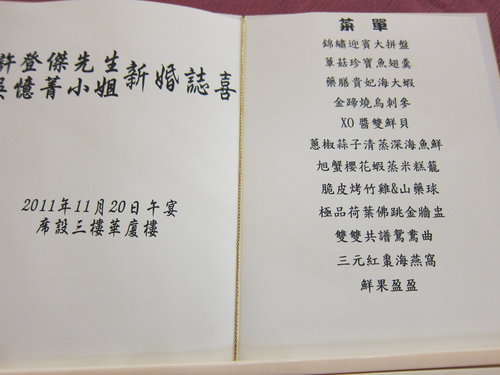 許登傑先生
吳憶菁小姐
新婚誌喜
2011年11月20日午宴
席設三樓華廈樓
菜單
錦繡迎賓大拼盤
蕈菇珍寶魚翅羹
藥膳貴妃海大蝦
金蹄燒烏刺參
XO醬雙鮮貝
蔥椒蒜子清蒸深海魚鮮
旭蟹櫻花蝦蒸米糕籠
脆皮烤竹雞&山藥球
極品荷葉佛跳金牆盅
雙雙共譜鴛鴦曲
三元紅棗海燕窩
鮮果盈盈